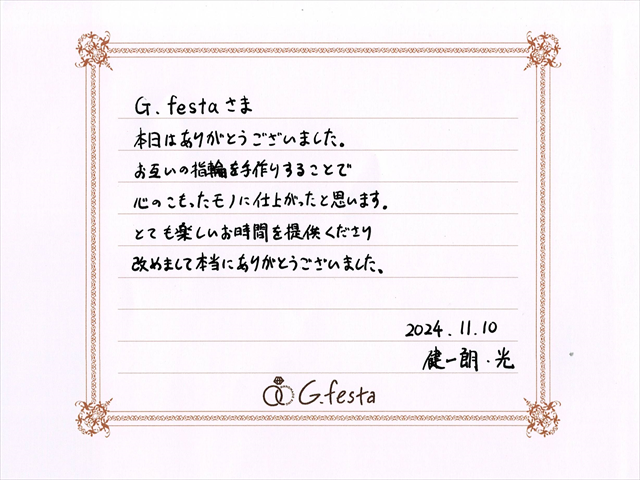 G.festaさま
本日はありがとうございました。
お互いの指輪を手作りすることで
心のこもったモノに仕上がったと思います。
とても楽しいお時間を提供くださり
改めまして本当にありがとうございました。
2024.11.10
健一朗・光
G.festa